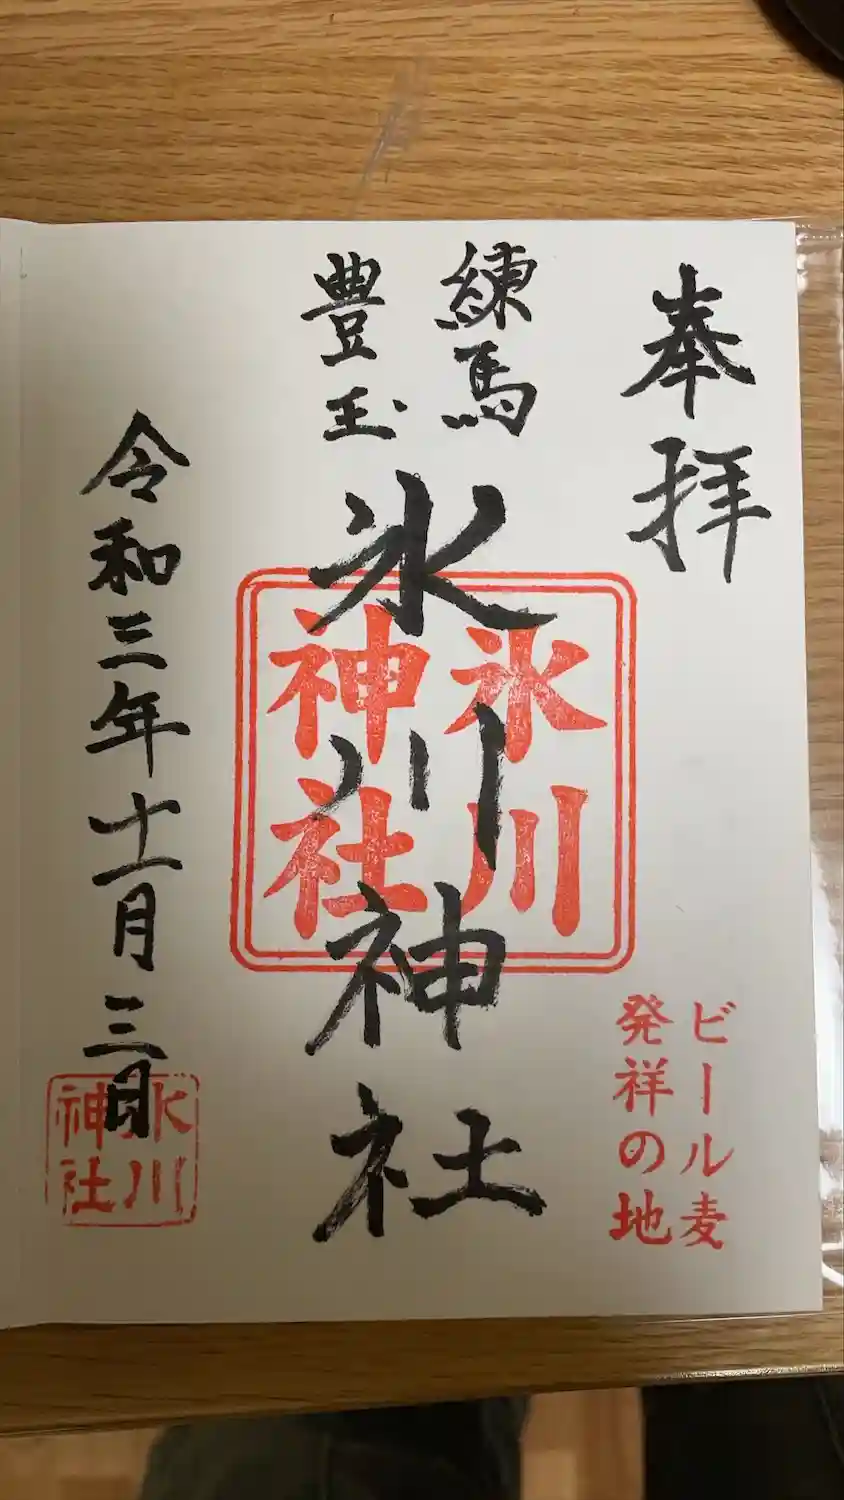 奉拝
ビール麦
発祥の地
練馬
豊玉
氷川神社
氷川
神社
令和三年十一月三日
氷川
神社